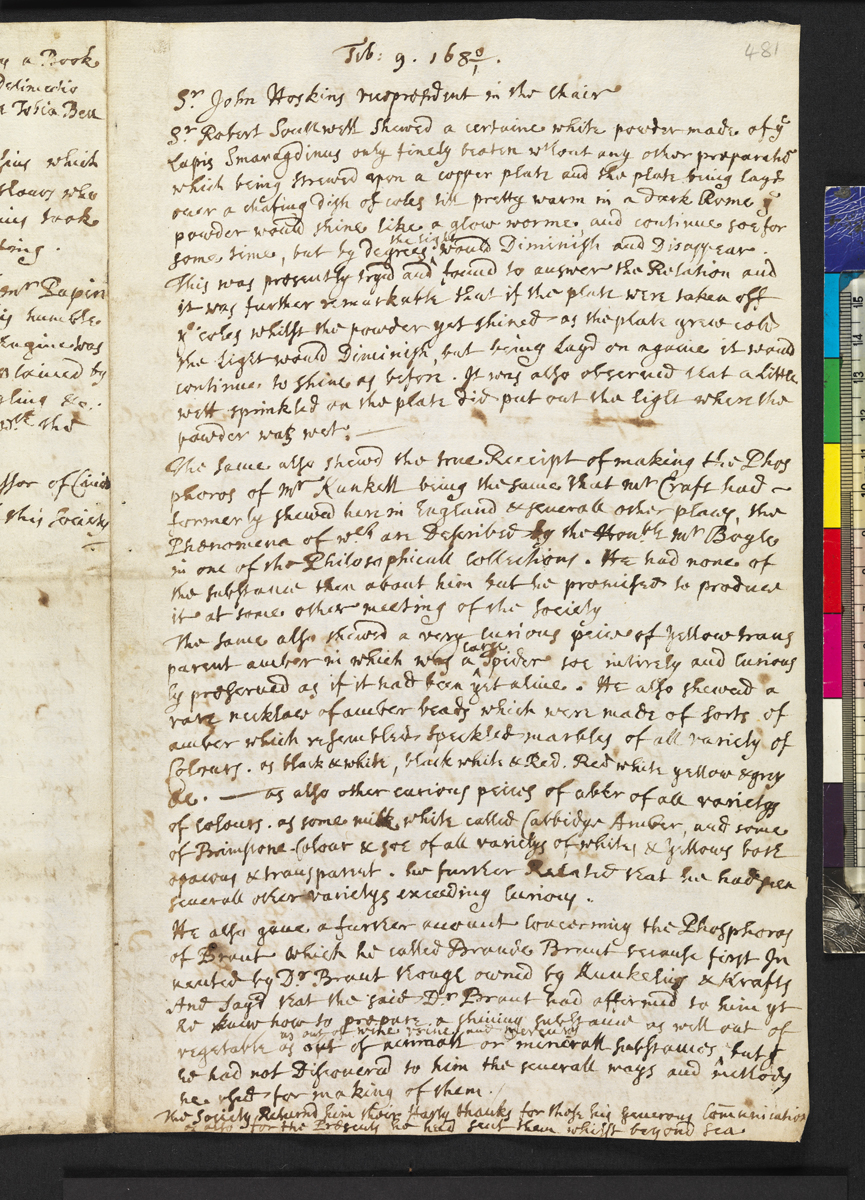 y a Book
Delineatio
r Tobia Beu
sius which
Colours who
ius took
bring.
Mr Papin
is humble
Engine was
ntained by
gling &c:
wth the
ssor of Cau
this Society
481
Feb: 9. 168 0/1.
Sr John Hoskins vicepresident in the Chair
Sr Robert Southwell Shewed a certaine white powder made of ye
Lapis Smaragdinus only finely beaten wthout any other preparatio
which being strewed upon a copper plate and the plate being layd
over a chafing dish of coles till pretty warm in a Dark Rome ye
powder would shine like a glow worme, and continue soe for
some time, but by Degrees ^the light would Diminish and Disappear.
This was presently tryd and found to answer the Relation and
it was further remarkable that if the plate were taken off
ye coles whilst the powder yet shined as the plate grew cold
the Light would Diminish, but being Layd on againe it would
continue to shine as before. It was also observed that a little
wett sprinkled on the plate did put out the light where the
powder was wet. —
The same also shewd the true Receipt of making the Phos
phoros of Mr Kunkell being the same that Mr Craft had
formerly shewed here in England & severall other places, the
Phænomena of wch are Described by the Honble Mr Boyle
in one of the Philosophicall Collections. He had none of
the substance then about him but he promised to produce
it at some other meeting of the Society
The same also shewed a very curious peice of yellow trans
parent amber in which was a ^large Spider soe intirely and curious
ly preserved as if it had been yet alive. He also shewed a
rare necklace of amber beads which were made of sorts of
amber which resembled Speckled marbles of all variety of
Colours. as black & white, black white & Red. Red white yellow & grey
&c. — as also other curious peices of aber of all varietys
of colours. as some milk white called Cabbidge Amber, and some
of Brimstone-Colour & soe of all varietys of whites & yellows both
opacous & transparent. he further Related that he had seen
severall other varietys exceeding Curious.
He also gave a further account Concerning the Phosphoros
of Brant which he called Brande Brant because first In
vented by Dr. Brant though owned by Kunkelius & Krafts
And Sayd that the said Dr Brant had affirmed to him yt
he knew how to prepare a shining substance as well out of
as out of wine urine and mercury
vegetable as out of animall or minerall substances but yt
he had not Discovered to him the severall ways and methods
he used for making of them.
The Society Returnd him their harty thanks for those his generous Communication
as also for the Presents he had sent them whilst beyond Sea